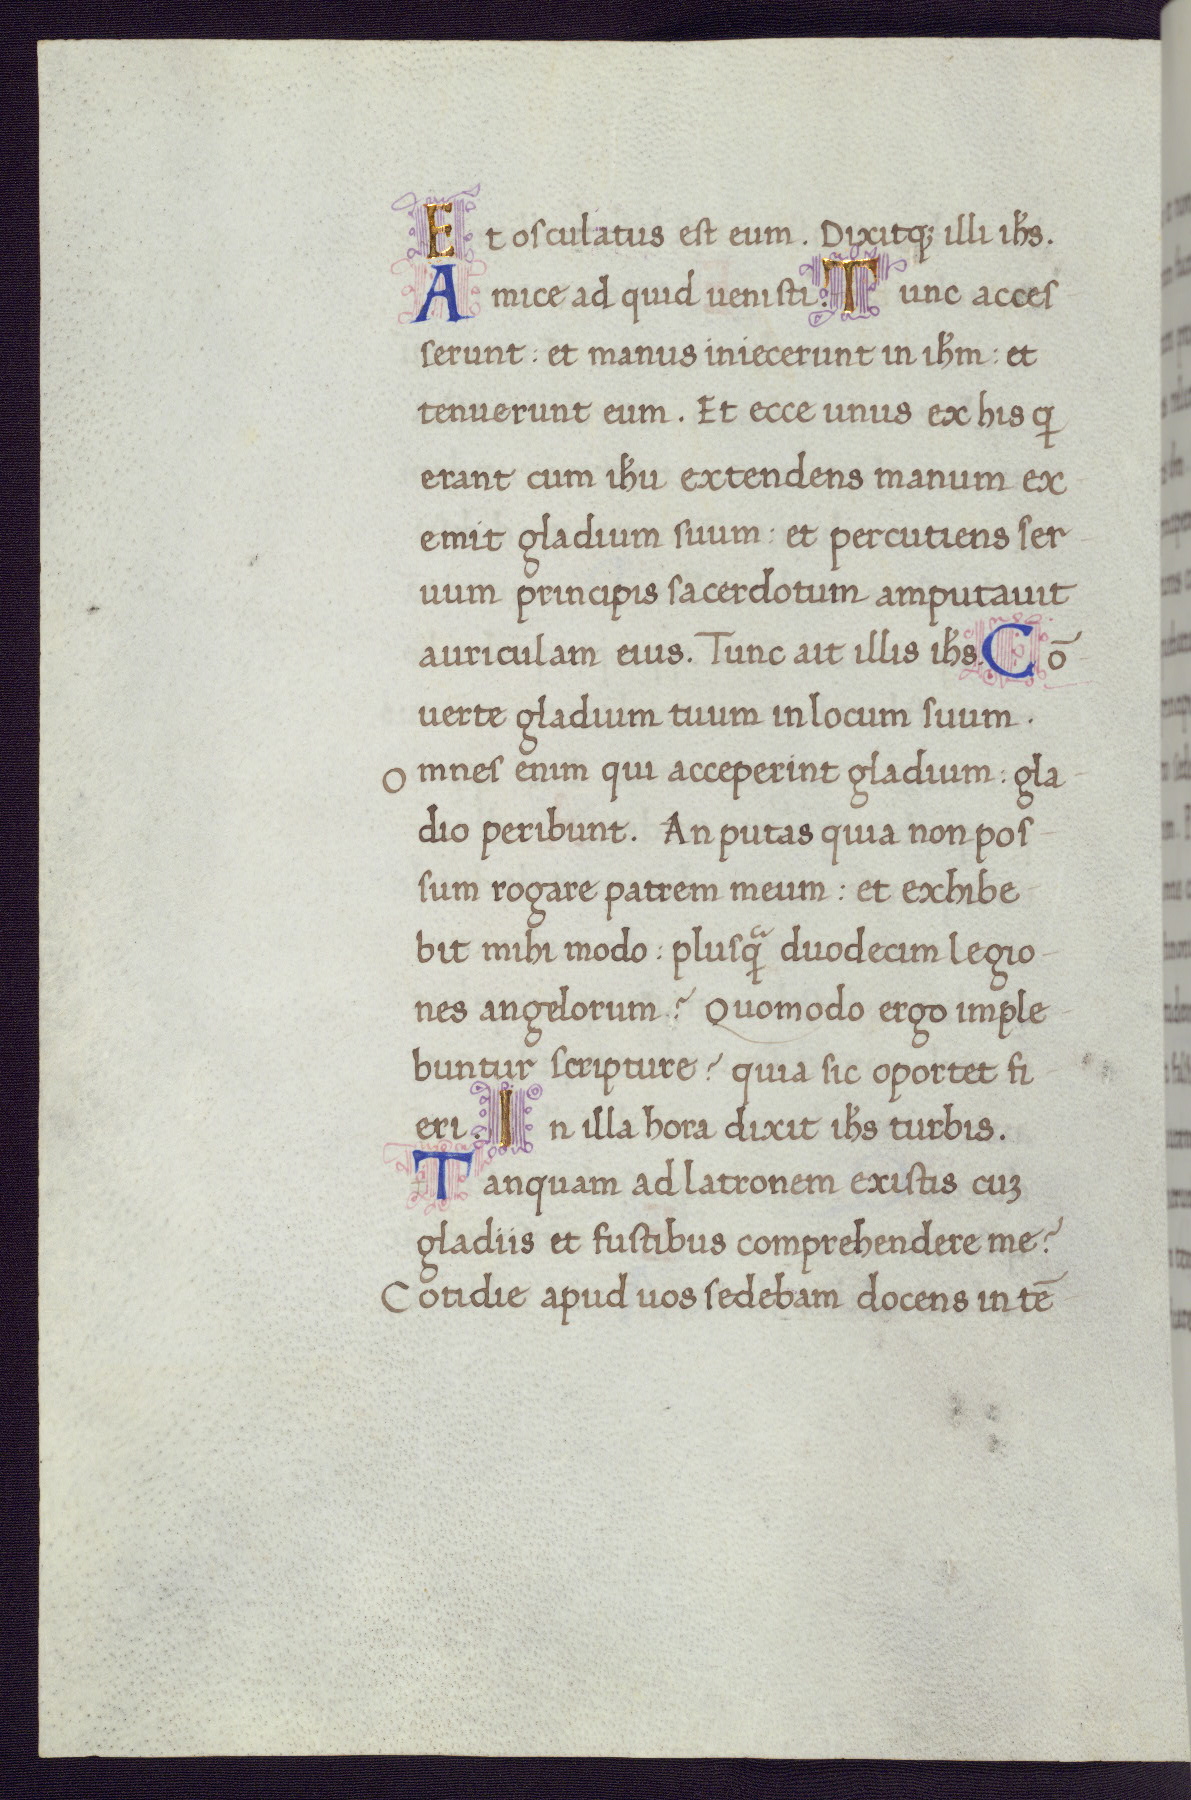 Et osculatus est eum. Dixitqꝫ illi ihs̄.
Amice ad quid uenisti? Tunc acces
serunt: et manus iniecerunt in ihm̄: et
tenuerunt eum. Et ecce unus ex his qͥ
erant cum ihū extendens manum ex
emit gladium suum: et percutiens ser
uum principis sacerdotum amputauit
auriculam eius. Tunc ait illis ihs̄. Cō
uerte gladium tuum in locum suum.
omnes enim qui acceperint gladium: gla
dio peribunt. An putas quia non pos
sum rogare patrem meum: et exhibe
bit mihi modo: plusqᷓ duodecim legio
nes angelorum? Quomodo ergo imple
buntur scripture? quia sic oportet fi
eri. In illa hora dixit ihs̄ turbis.
Tanquam ad latronem existis cuꝫ
gladiis et fustibus comprehendere me?
Cotidie apud uos sedebam docens in tē